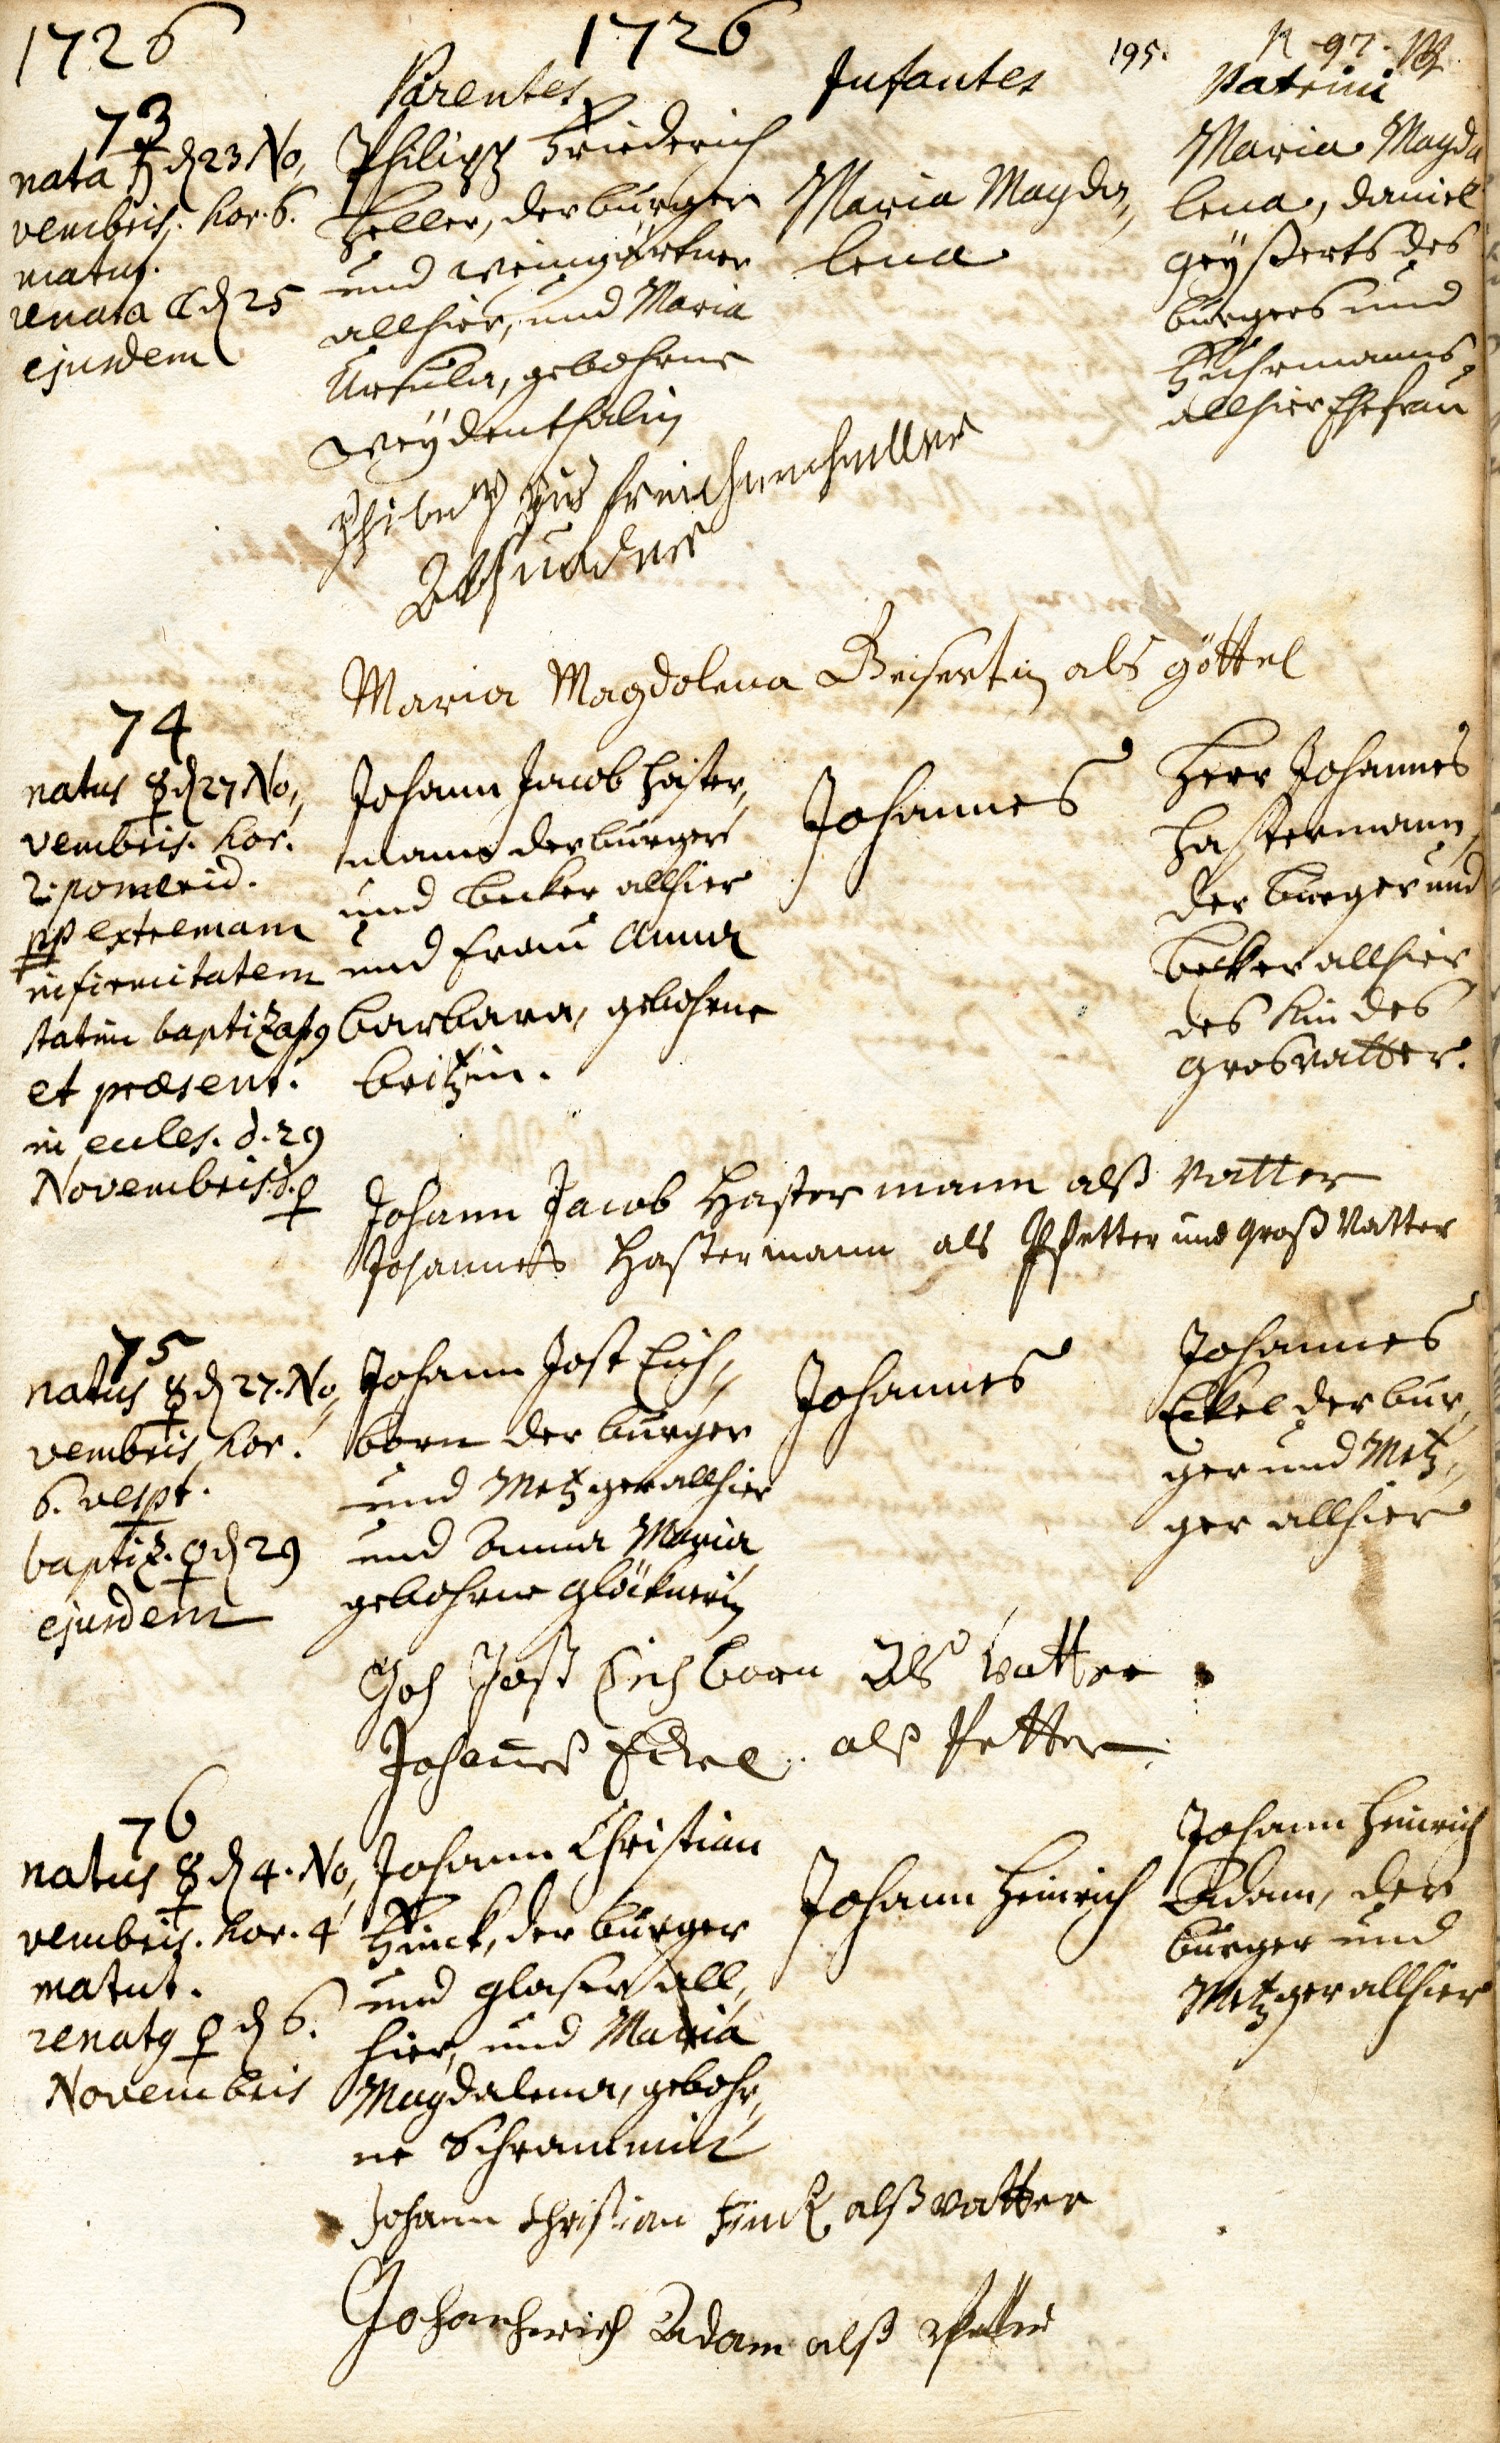 1726
1726
195.
R 97.
Parentes
Infantes
Patrini
73
nata ♄ d 23 No,
vembris. hor. 6.
matut.
renata ☾ d 25
ejusdem
Philipp Friederich
Heller, der burger
und weingärtner
allhier, und Maria
Ursula, gebohrne
Weÿdenthalin
Maria Magda,,
lena
Maria Magda
lena, Daniel
Geÿserts des
burgers und
Fuhrmanns
allhier Ehefrau
Maria Magdolena Geisertin als göttel
74
natus ☿ d 27 No,,
vembris. hor.
2. pomerid.
pp extremam
infirmitatem
statim baptizatus
et præsent.
in eccles. d. 29
Novembris. d. ♀
Johann Jacob Haster,,
mann der burger
und becker allhier
und Frau Anna
Barbara, gebohrne
britzin.
Johannes
Herr Johannes
Hastermann,
der burger und
becker allhier
des Kindes
Grosvatter.
Johann Jacob Hastermann alß Vatter
Johannes Hastermann als Pfetter und Groß Vatter
75
natus ☿ d 27. No,,
vembris hor.
6. vespt.
baptiz. ♀ d 29
ejusdem
Johann Jost Eich,,
born der burger
und Metzger allhier
und Anna Maria
gebohrne Glöcknerin
Johannes
Johannes
Eckel der bur,,
ger und Metz,,
ger allhier
Joh Jost Eichborn Als Vatter
Johannes Eckel alß Petter
76
natus ☿ d 4. No,,
vembris. hor. 4
matut.
renatus ♀ d 6.
Novembris
Johann Christian
Finck, der burger
und glaser all,,
hier, und Maria
Magdalena, gebohr,,
ne Schrammin
Johann Heinrich
Johann Heinrich
Adam, der
burger und
Metzger allhier
Johann Christian Finck alß vatter
Johanhenrich Adam alß